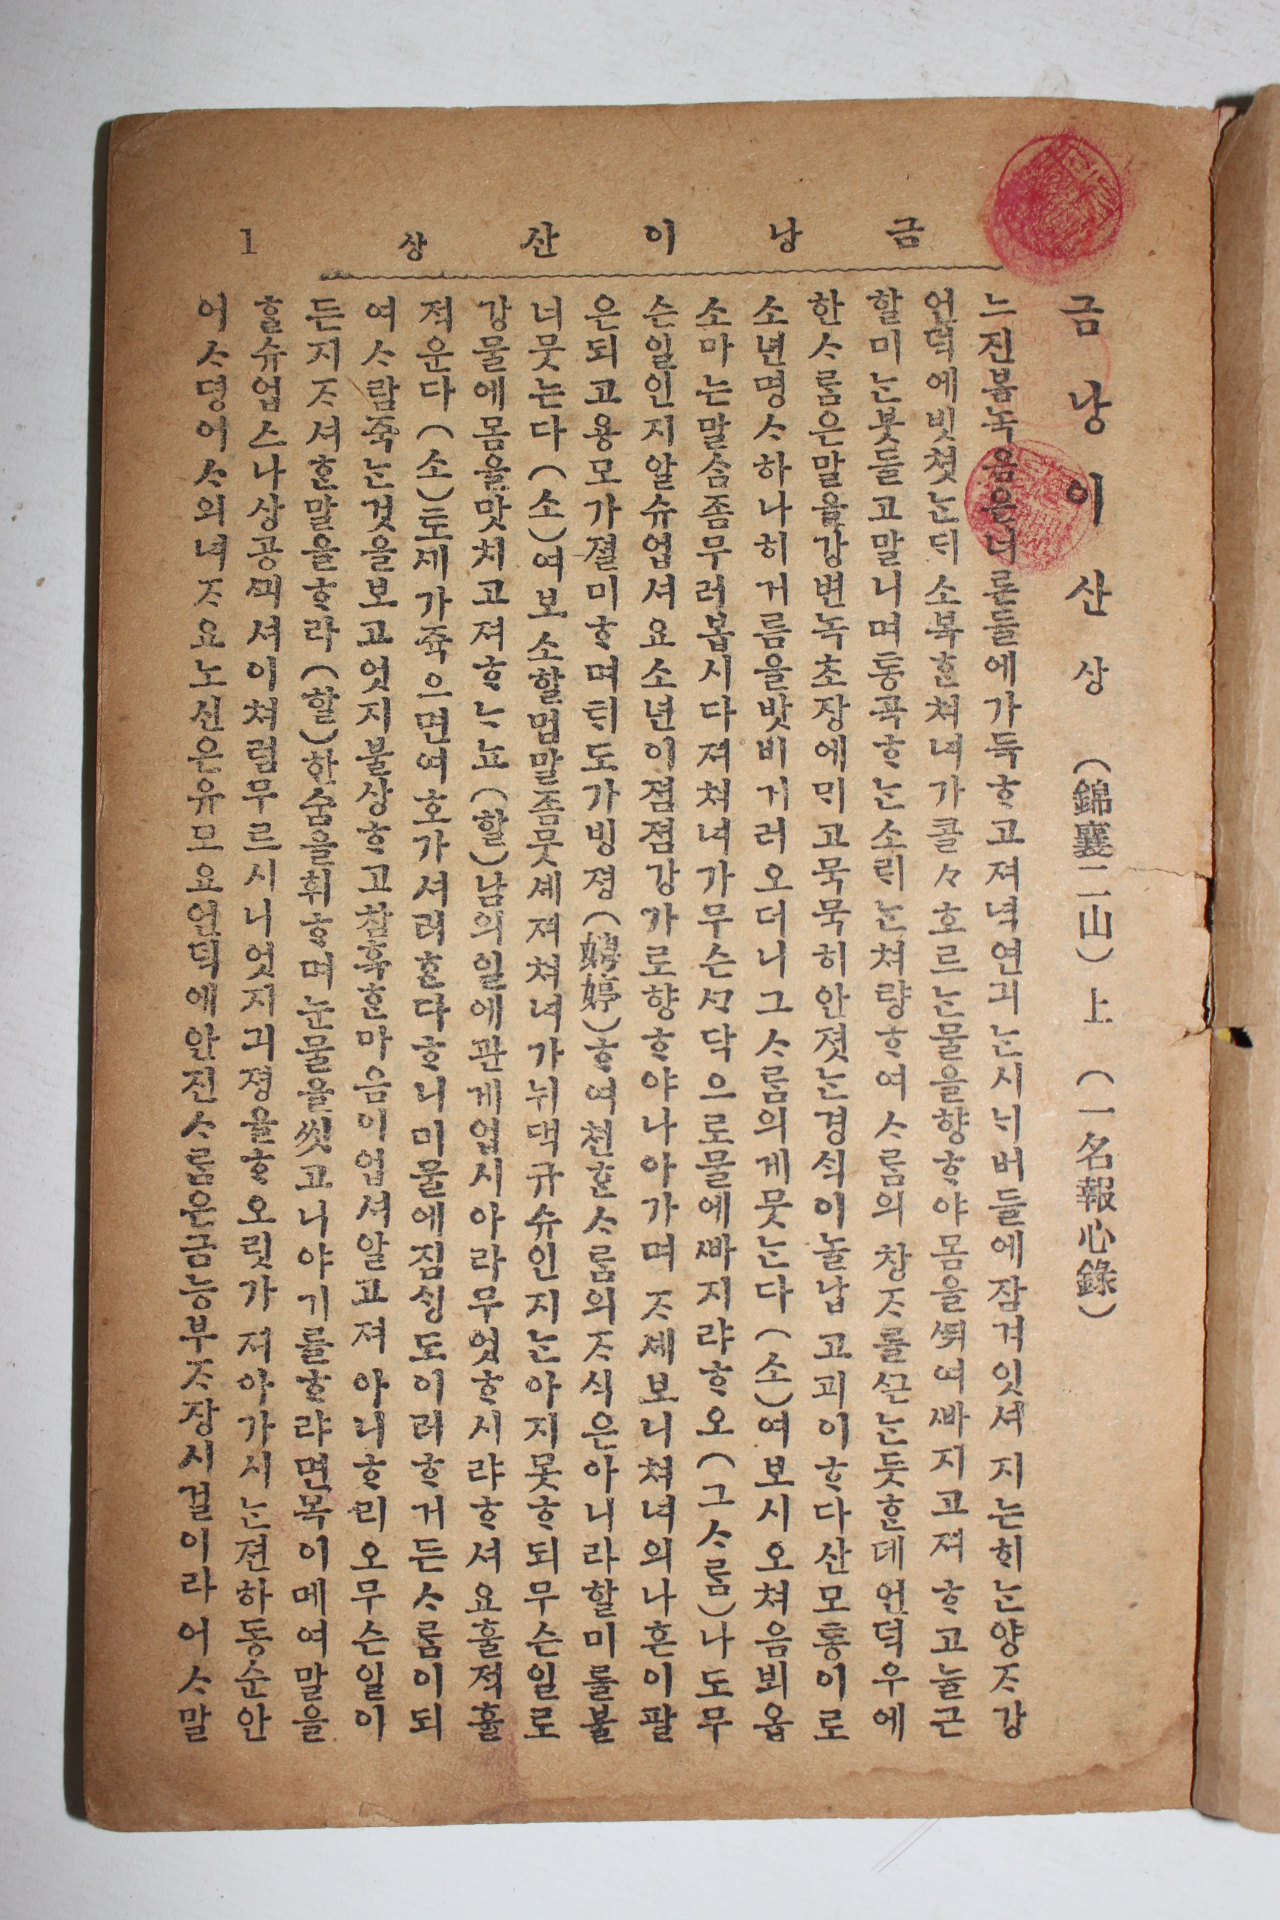 금낭이산 상 1
금낭이산 상 (錦襄二山) 上 (一名報心錄)
느진봄녹음은너른들에가득ᄒᆞ고져녁연긔ᄂᆞᆫ시ᄂᆡ버들에잠겨잇셔지는ᄒᆡᄂᆞᆫ양ᄌᆞ강
언덕에빗쳣ᄂᆞᆫᄃᆡ소복ᄒᆞᆫ쳐녀가콜々호르ᄂᆞᆫ물을향ᄒᆞ야몸을ᄯᅱ여ᄲᅡ지고져ᄒᆞ고늘근
할미ᄂᆞᆫ붓들고말니며통곡ᄒᆞᄂᆞᆫ소ᄅᆡᄂᆞᆫ쳐량ᄒᆞ여ᄉᆞᄅᆞᆷ의창ᄌᆞ를ᄭᅳᆫᄂᆞᆫ듯ᄒᆞᆫ데언덕우에
한ᄉᆞᄅᆞᆷ은말을강변녹초장에ᄆᆡ고묵묵히안졋ᄂᆞᆫ경식이놀납고괴이ᄒᆞ다산모통이로
소년명ᄉᆞ하나히거름을밧비거러오더니그ᄉᆞᄅᆞᆷ의게뭇ᄂᆞᆫ다(소)여보시오쳐음뵈옵
소마는말ᄉᆞᆷ좀무러봅시다져쳐녀가무슨ᄭᆞ닥으로물에ᄲᅡ지랴ᄒᆞ오(그ᄉᆞᄅᆞᆷ)나도무
슨일인지알슈업셔요소년이졈졈강가로향ᄒᆞ야나아가며ᄌᆞ셰보니쳐녀의나흔이팔
은되고용모가졀미ᄒᆞ며ᄐᆡ도가빙졍(娉婷)ᄒᆞ여쳔ᄒᆞᆫᄉᆞᄅᆞᆷ의ᄌᆞ식은아니라할미를불
너뭇는다(소)여보소할멈말좀뭇셰져쳐녀가뉘댁규슈인지ᄂᆞᆫ아지못ᄒᆞ되무슨일로
강물에몸을맛치고져ᄒᆞᄂᆞ뇨(할)남의일에관게업시아라무엇ᄒᆞ시랴ᄒᆞ셔요훌적훌
적운다(소)토셰가죽으면여호가셔러ᄒᆞᆫ다ᄒᆞ니미물에짐싱도이러ᄒᆞ거든ᄉᆞᄅᆞᆷ이되
여ᄉᆞ람죽ᄂᆞᆫ것을보고엇지불상ᄒᆞ고참혹ᄒᆞᆫ마음이업셔알고져아니ᄒᆞ리오무슨일이
든지ᄌᆞ셔ᄒᆞᆫ말을ᄒᆞ라(할)한숨을휘ᄒᆞ며눈물을씻고니야기를ᄒᆞ랴면목이메여말을
ᄒᆞᆯ슈업스나상공ᄭᅦ셔이쳐럼무르시니엇지긔졍을ᄒᆞ오릿가져아가시ᄂᆞᆫ젼하동순안
어ᄉᆞ뎡어ᄉᆞ의녀ᄌᆞ요노신은유모요언덕에안진ᄉᆞᄅᆞᆷ은금능부ᄌᆞ장시걸이라어ᄉᆞ말